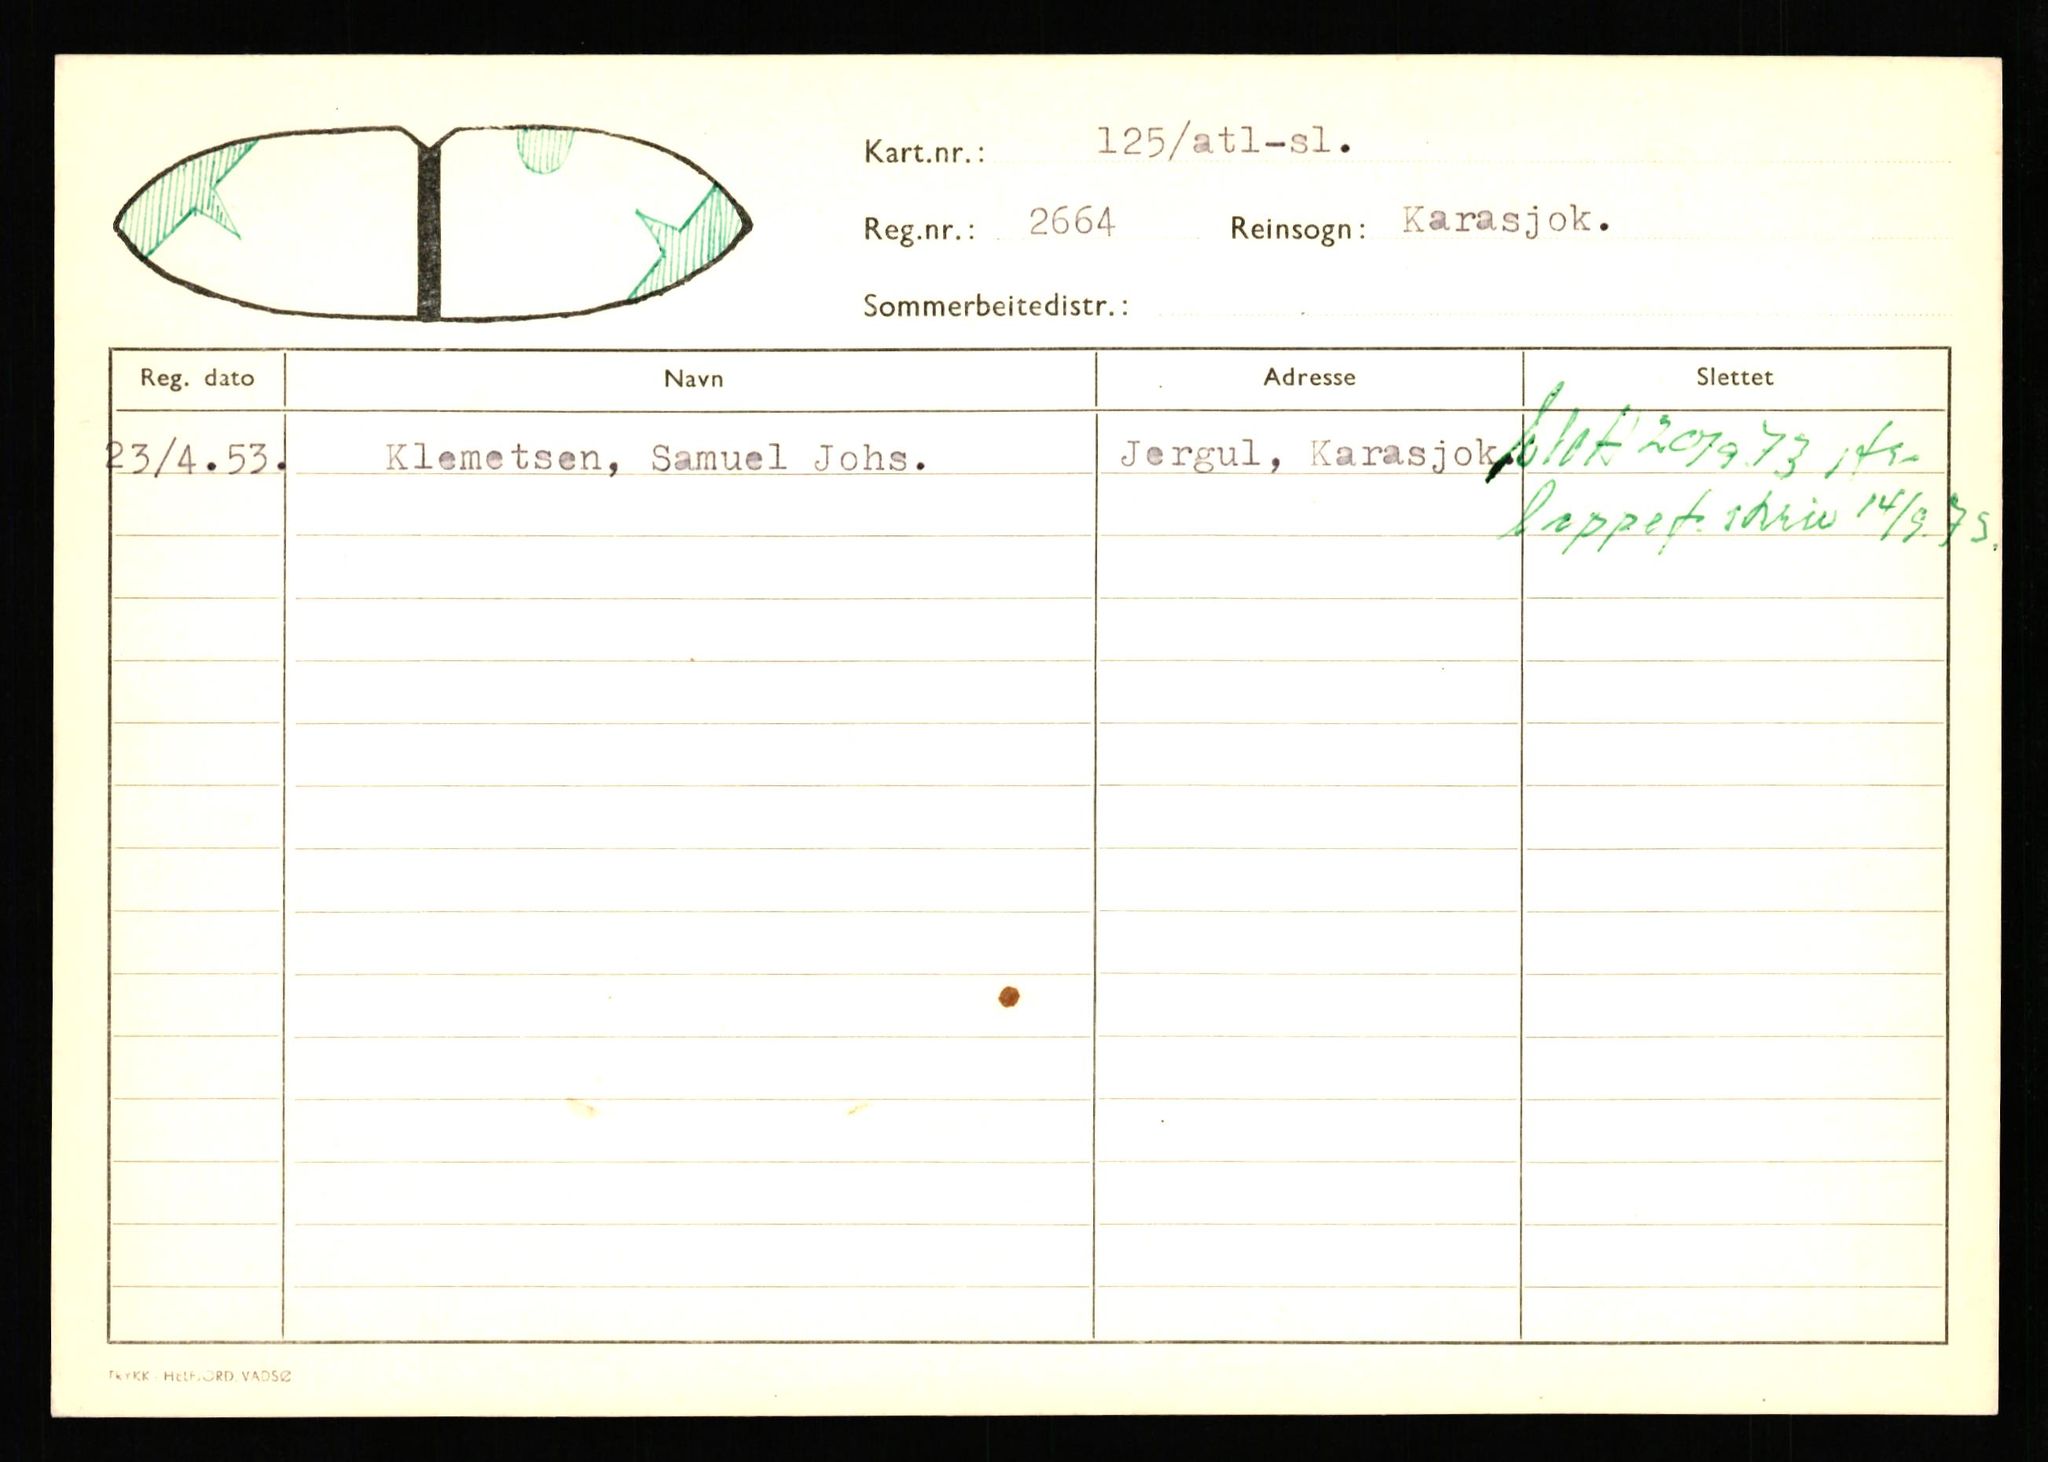 Kart.nr.: 125/atl-sl.
Reg.nr.: 2664 Reinsogn: Karasjok.
Sommerbeitedistr.:
Reg. dato Navn Adresse Slettet
23/4.53. Klemetsen, Samuel Johs. Jergul, Karasjok. slett 20/9 73 jfr
lappef. skriv 14/9.73.
TRYKK - HELFJORD, VADSØ